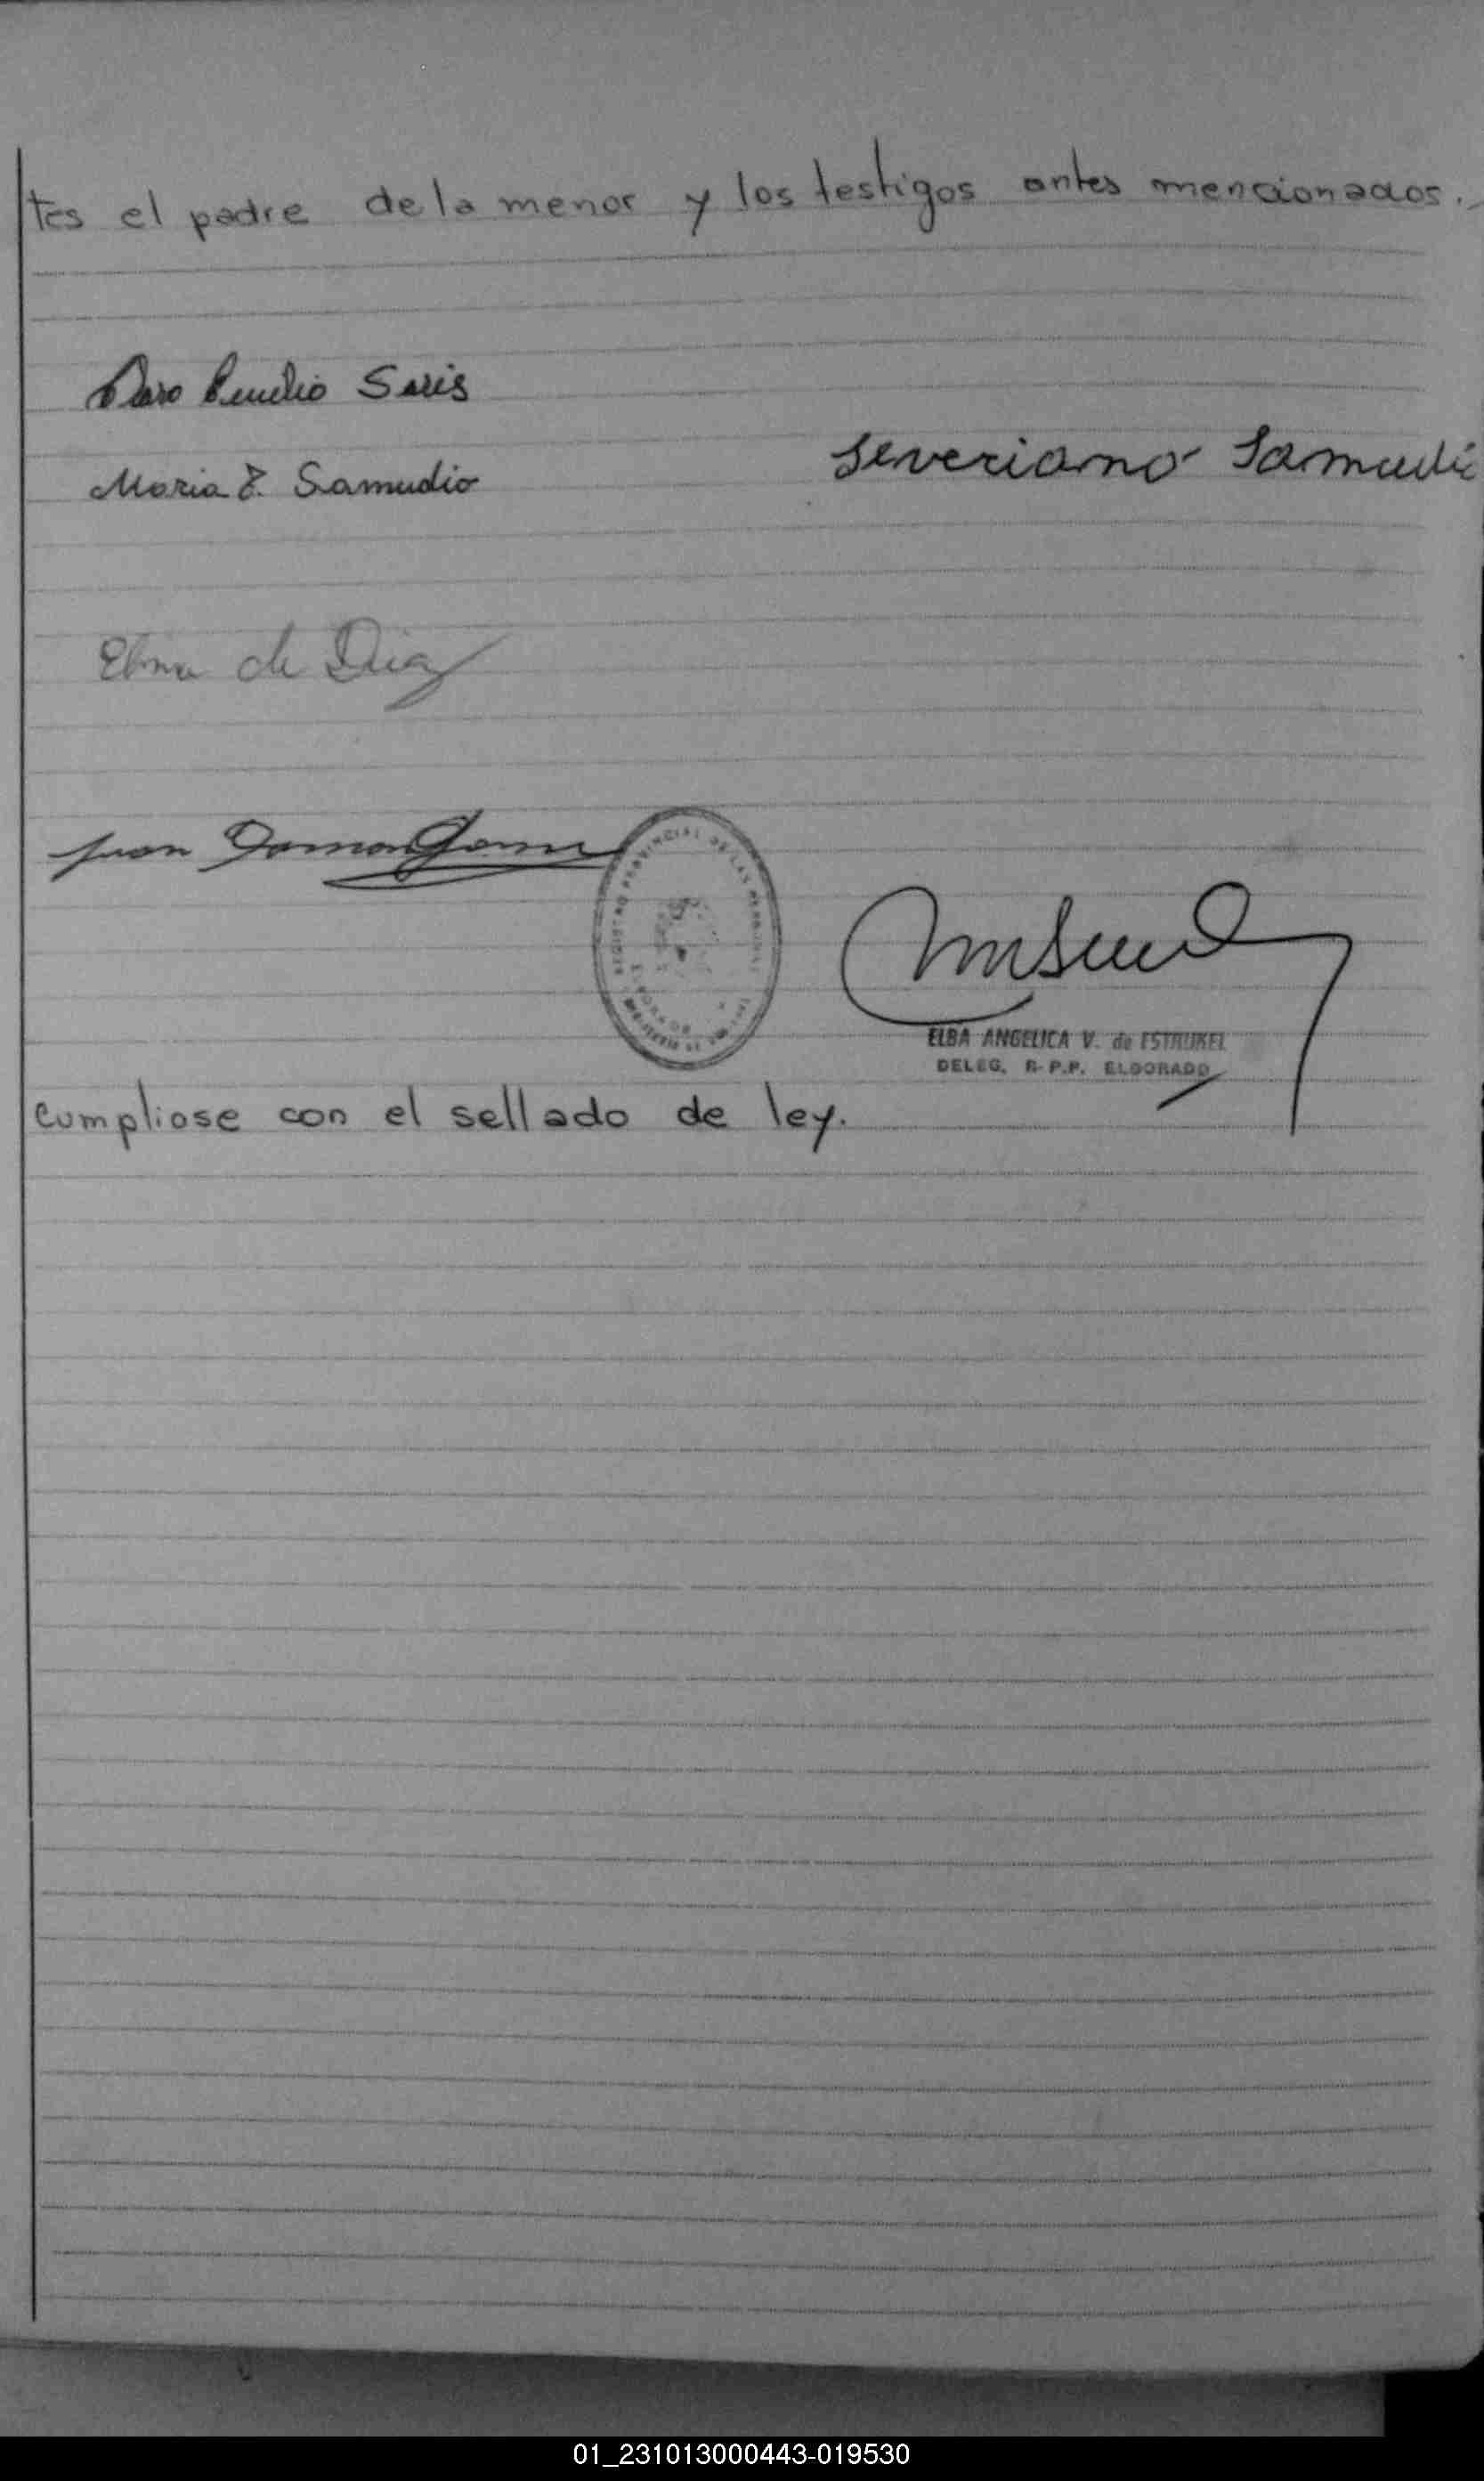 tes el padre de la menor y los testigos antes mencionados.
Saris
Maria E. Samudio
Severiano Samudio
Elma de Diaz
Juan Ramon Gomez
REGISTRO PROVINCIAL DE LAS PERSONAS
ELDORADO
ELBA ANGELICA V. de ESTRUKEL
DELEG. R.P.P. ELDORADO
cumpliose con el sellado de ley.
01_231013000443-019530